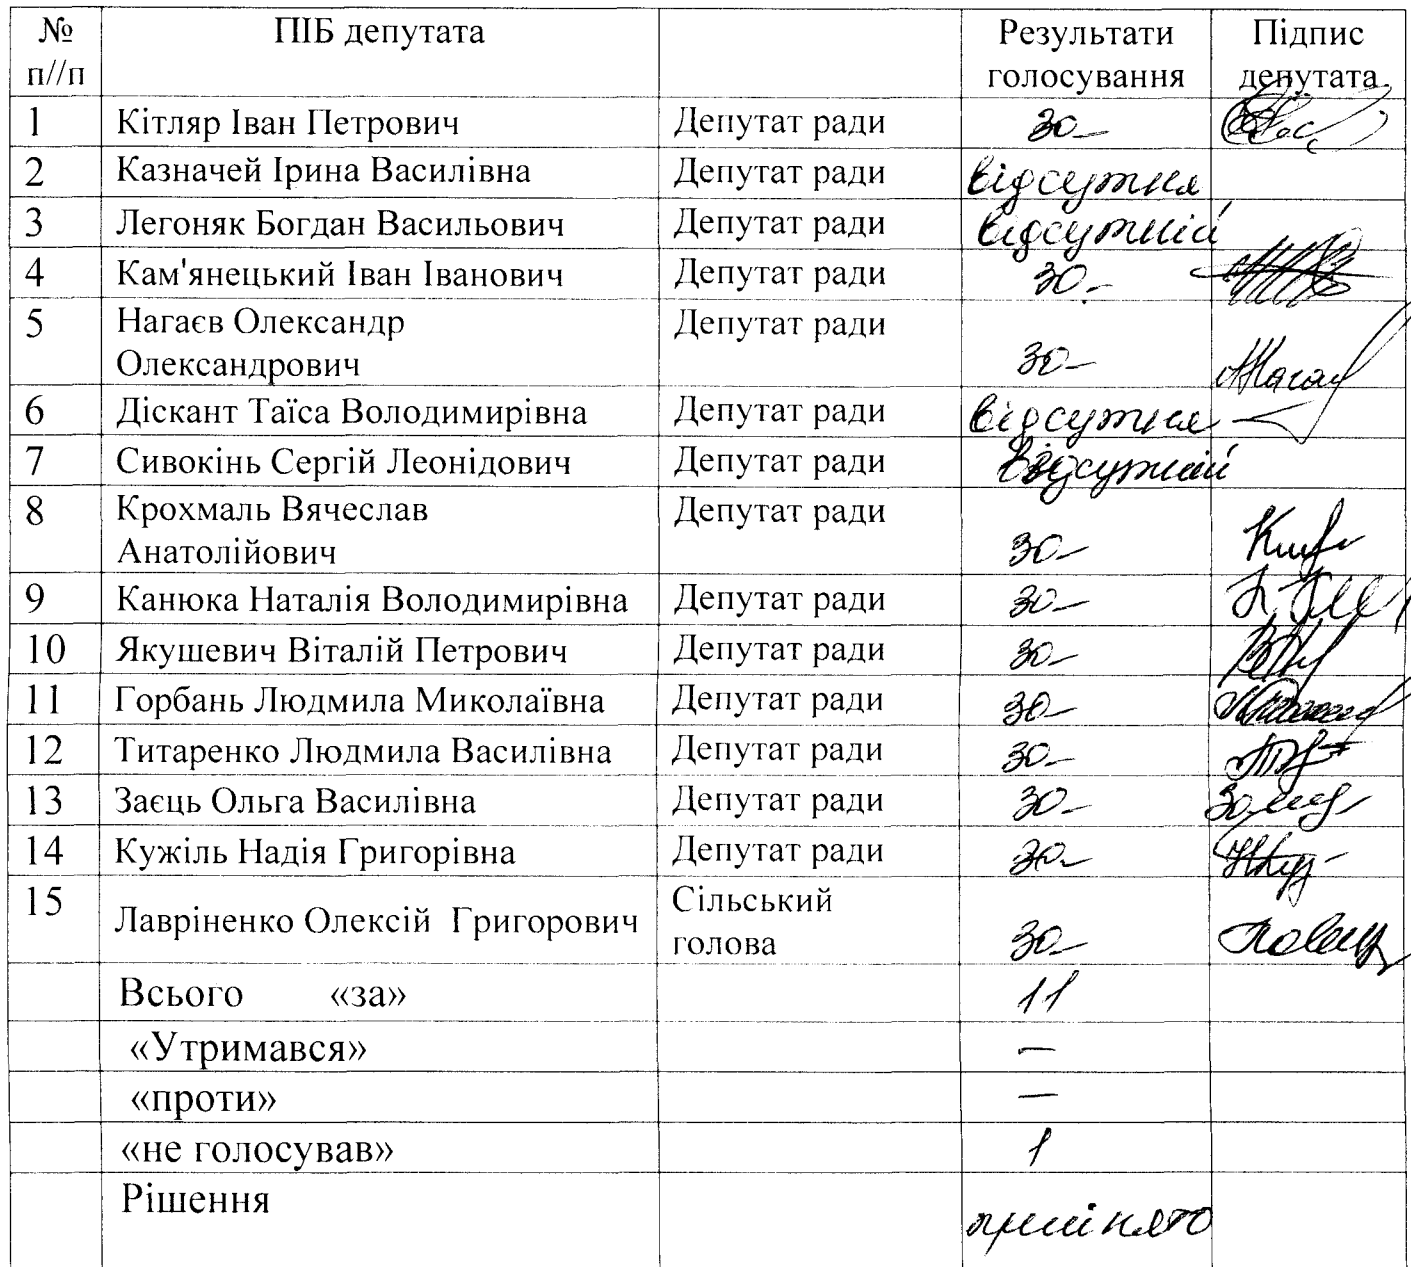 № п//п ПІБ депутата Результати голосування Підпис депутата
1 Кітляр Іван Петрович Депутат ради за
2 Казначей Ірина Василівна Депутат ради відсутня
3 Легоняк Богдан Васильович Депутат ради відсутній
4 Кам'янецький Іван Іванович Депутат ради за
5 Нагаєв Олександр Депутат ради
Олександрович за
6 Діскант Таїса Володимирівна Депутат ради відсутня –
7 Сивокінь Сергій Леонідович Депутат ради відсутній
8 Крохмаль Вячеслав Депутат ради
Анатолійович за
9 Канюка Наталія Володимирівна Депутат ради за
10 Якушевич Віталій Петрович Депутат ради за
11 Горбань Людмила Миколаївна Депутат ради за
12 Титаренко Людмила Василівна Депутат ради за
13 Заєць Ольга Василівна Депутат ради за
14 Кужіль Надія Григорівна Депутат ради за
15 Лавріненко Олексій Григорович Сільський голова за
Всього «за» 11
«Утримався» –
«проти» –
«не голосував» 1
Рішення прийнято